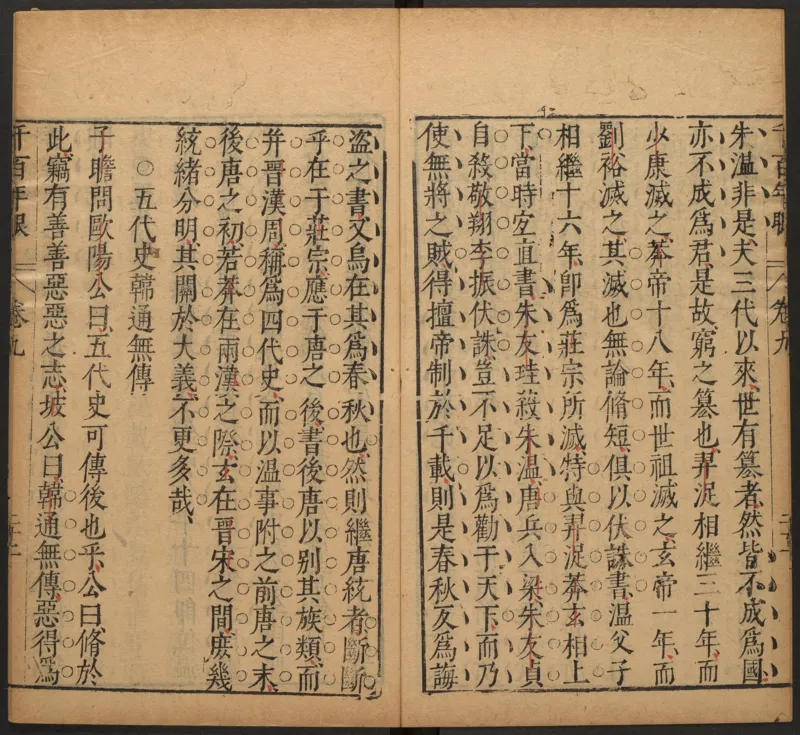 朱溫非是夫三代以來世有篡者然皆不成爲國
亦不成爲君是故窮之篡也羿浞相繼三十年而
少康滅之莽帝十八年而世祖滅之玄帝一年而
劉裕滅之其滅也無論脩短俱以伏誅書溫父子
相繼十六年卽爲莊宗所滅特與羿浞莽玄相上
下當時宜直書朱友珪殺朱溫唐兵入梁朱友貞
自殺敬翔李振伏誅豈不足以爲勸于天下而乃
使無將之賊得擅帝制於千載則是春秋反爲誨
盜之書文烏在其爲春秋也然則繼唐統者斷斷
乎在于莊宗應于唐之後書後唐以别其族類而
并晉漢周稱爲四代史而以溫事附之前唐之末
後唐之初若莽在兩漢之際玄在晉宋之間庶幾
統緒分明其關於大義不更多哉
○五代史韓通無傳
子瞻問歐陽公曰五代史可傳後也乎公曰脩於
此竊有善善惡惡之志坡公曰韓通無傳惡得爲
千百年眼 卷九